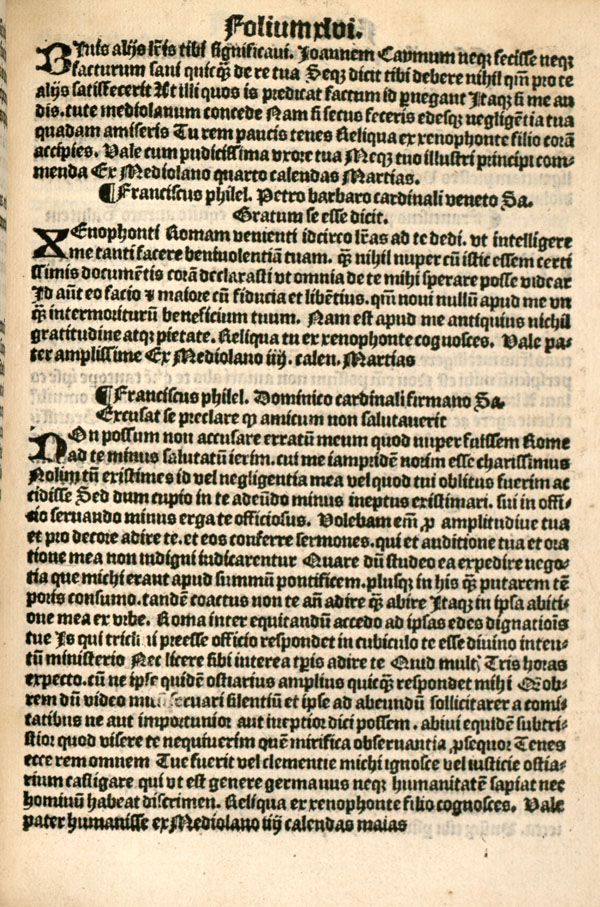 Folium xlvi.
BInis alijs lr̃is tibi significaui. Joannem Caymum neqꝫ fecisse neqꝫ
facturum sani quicqꝫ de re tua Seqꝫ dicit tibi debere nihil qm̃ pro te
alijs satisfecerit At illi quos is predicat factum id ꝑnegant Itaqꝫ si me au
dis. tute mediolanum concede Nam si secus feceris edesqꝫ negligẽtia tua
quadam amiseris Tu rem paucis tenes Reliqua ex xenophonte filio corã
accipies. Vale cum pudicissima vxore tua Meqꝫ tuo illustri principi com⸗
menda Ex Mediolano quarto calendas Martias.
¶Franciscus philel. Petro barbaro cardinali veneto Sa.
Gratum se esse dicit.
XEnophonti Romam venienti idcirco lr̃as ad te dedi. vt intelligere
me tanti facere beniuolentiã tuam. qꝫ nihil nuper cũ istic essem certi
ssimis documẽtis corã declarasti vt omnia de te mihi sperare posse videar
Id aũt eo facio & maiore cũ fiducia et libẽtius. qm̃ noui nullũ apud me vn
qꝫ intermoriturũ beneficium tuum. Nam est apud me antiquius nichil
gratitudine atqꝫ pietate. Reliqua tu ex xenophonte cognosces. Vale pa⸗
ter amplissime Ex Mediolano iiij. calen. Martias
¶Franciscus philel. Dominico cardinali firmano Sa.
Excusat se preclare ꝙ amicum non salutauerit
NOn possum non accusare erratũ meum quod nuper fuissem Rome
ad te minus salutatũ ierim. cui me iampridẽ norim esse charissimus
Nolim tñ existimes id vel negligentia mea vel quod tui oblitus fuerim ac
cidisse Sed dum cupio in te adeũdo minus ineptus existimari. sui in offi⸗
cio seruando minus erga te officiosus. Volebam em̃ ꝓ amplitudine tua
et pro decore adire te. et eos conferre sermones. qui et auditione tua et ora
tione mea non indigni iudicarentur Quare dũ studeo ea expedire nego⸗
tia que michi erant apud summũ pontificem. plusqꝫ in his qꝫ putarem tẽ
poris consumo. tandẽ coactus non te añ adire qꝫ abire Itaqꝫ in ipsa abiti⸗
one mea ex vrbe. Roma inter equitandũ accedo ad ipsas edes dignatiõis
tue Is qui tricli i preesse officio respondet in cubiculo te esse diuino inten⸗
tũ ministerio Nec licere sibi interea tp̃is adire te Quid mult Tris horas
expecto. cũ ne ipse quidẽ ostiarius amplius quicqꝫ respondet mihi Qob⸗
rem dũ video secuari silentiũ et ipse ad abeundũ sollicitarer a comi⸗
tatibus ne aut importunior aut ineptior dici possem. abiui equidẽ subtri⸗
stior quod visere te nequiuerim quẽ mirifica obseruantia ꝓsequor Tenes
ecce rem omnem Tue fuerit vel clementie michi ignosce vel iusticie ostia⸗
rium castigare qui vt est genere germanus neqꝫ humanitatẽ sapiat nec
hominũ habeat discrimen. Reliqua ex xenophonte filio cognosces. Vale
pater humanisse ex Mediolano iiij calendas maias